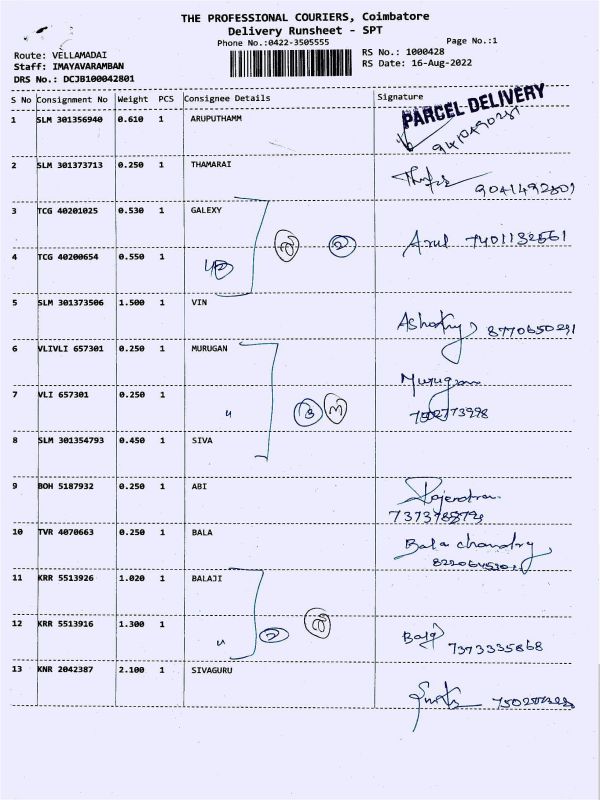 THE PROFESSIONAL COURIERS, Coimbatore
Delivery Runsheet - SPT
Phone No.:0422-3505555
Page No.:1
Route: VELLAMADAI
RS No.: 1000428
Staff: IMAYAVARAMBAN
RS Date: 16-Aug-2022
DRS No.: DCJB100042801
S No Consignment No Weight PCS Consignee Details Signature
PARCEL DELIVERY
1 SLM 301356940 0.610 1 ARUPUTHAMM
2 SLM 301373713 0.250 1 THAMARAI
9041492809
3 TCG 40201025 0.530 1 GALEXY
2
Arul 7401132561
4 TCG 40200654 0.550 1
5 SLM 301373506 1.500 1 VIN
8770650291
6 VLIVLI 657301 0.250 1 MURUGAN
Murugan
7 VLI 657301 0.250 1
3
7502773998
8 SLM 301354793 0.450 1 SIVA
9 BOH 5187932 0.250 1 ABI
Rajendran
10 TVR 4070663 0.250 1 BALA
Bala
11 KRR 5513926 1.020 1 BALAJI
12 KRR 5513916 1.300 1
2
7373335868
13 KNR 2042387 2.100 1 SIVAGURU